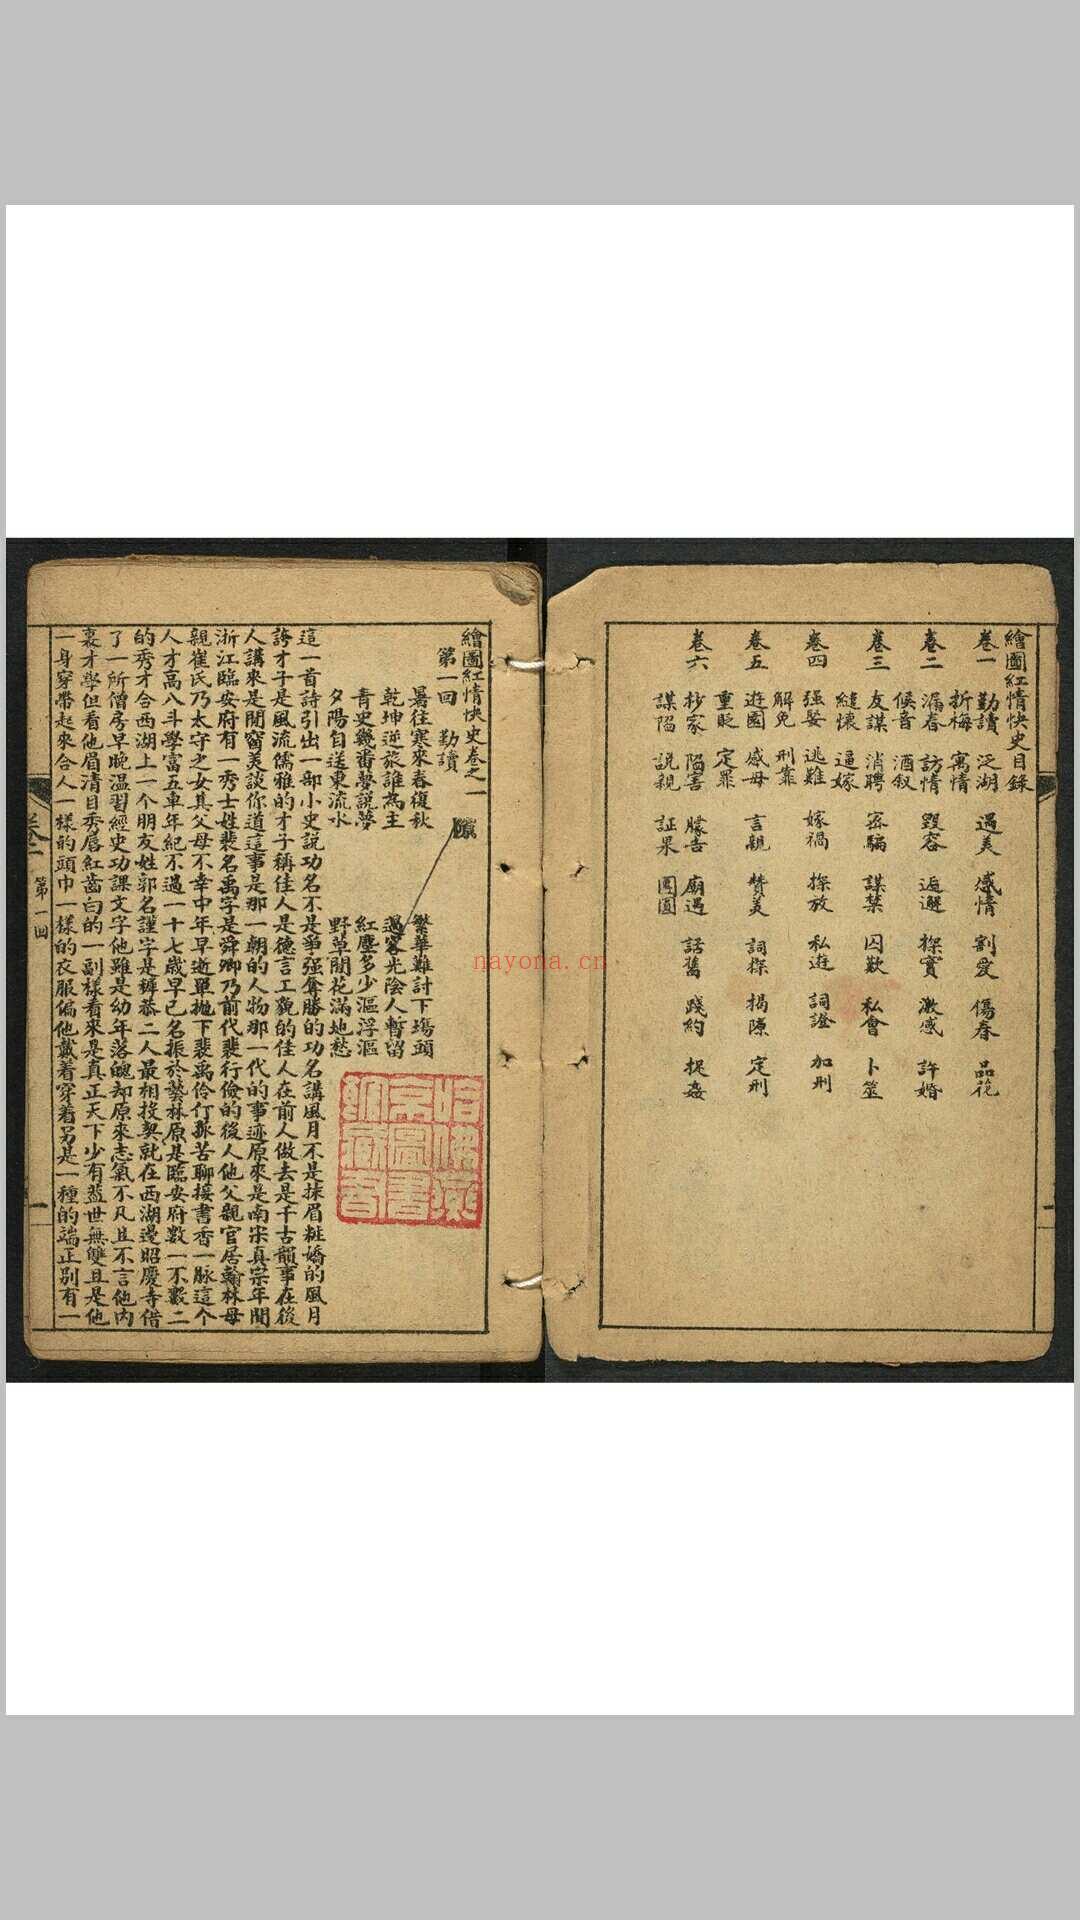 繪圖紅情快史目錄
卷一 勤讀 泛湖 遇美 感情 割愛 傷春 品花
折梅 寓情
卷二 漏春 訪情 毀容 逅避 探實 激感 許婚
候音 酒叙
卷三 友謀 消聘 密騙 謀禁 囚歎 私會 卜筮
縫懷 逼嫁
卷四 强娶 逃難 嫁禍 探放 私逰 詞證 加刑
解免 刑靠
卷五 逰園 感母 言親 贊美 詞探 揭隙 定刑
重貶 定罪
卷六 抄家 陷害 朦告 廟遇 話舊 踐約 捉姦
謀陷 説親 証果 團圓
繪圖紅情快史卷之一
第一回 勤讀
暑往寒來春復秋 繁華難討下塲頭
乾坤逆旅誰為主 過客光陰人暫留
青史幾番夢說夢 紅塵多少漚浮漚
夕陽自送東流水 野草閒花滿地愁
這一首詩引出一部小史說功名不是爭强奪勝的功名講風月不是抹眉粧嬌的風月
誇才子是風流儒雅的才子稱佳人是德言工貌的佳人在前人做去是千古韻事在後
人講來是閒窗美談你道這事是那一朝的人物那一代的事迹原來是南宋真宗年間
浙江臨安府有一秀士姓裴名禹字是舜卿乃前代裴行儉的後人他父親官居翰林母
親崔氏乃太守之女其父母不幸中年早逝單拋下裴禹伶仃孤苦聊接書香一脉這个
人才高八斗學富五車年紀不過一十七歲早已名振於藝林原是臨安府數一不數二
的秀才合西湖上一个朋友姓郭名謹字是褲恭二人最相投契就在西湖邊昭慶寺借
了一所僧房早晚温習經史功課文字他雖是幼年落魄却原來志氣不凡且不言他內
裏才學但看他眉清目秀唇紅齒白的一副樣看來是真正天下少有蓋世無雙且是他
一身穿帶起來合人一樣的頭巾一樣的衣服偏他戴着穿着另是一種的端正别有一
卷一 第一回 一
nayona.cn